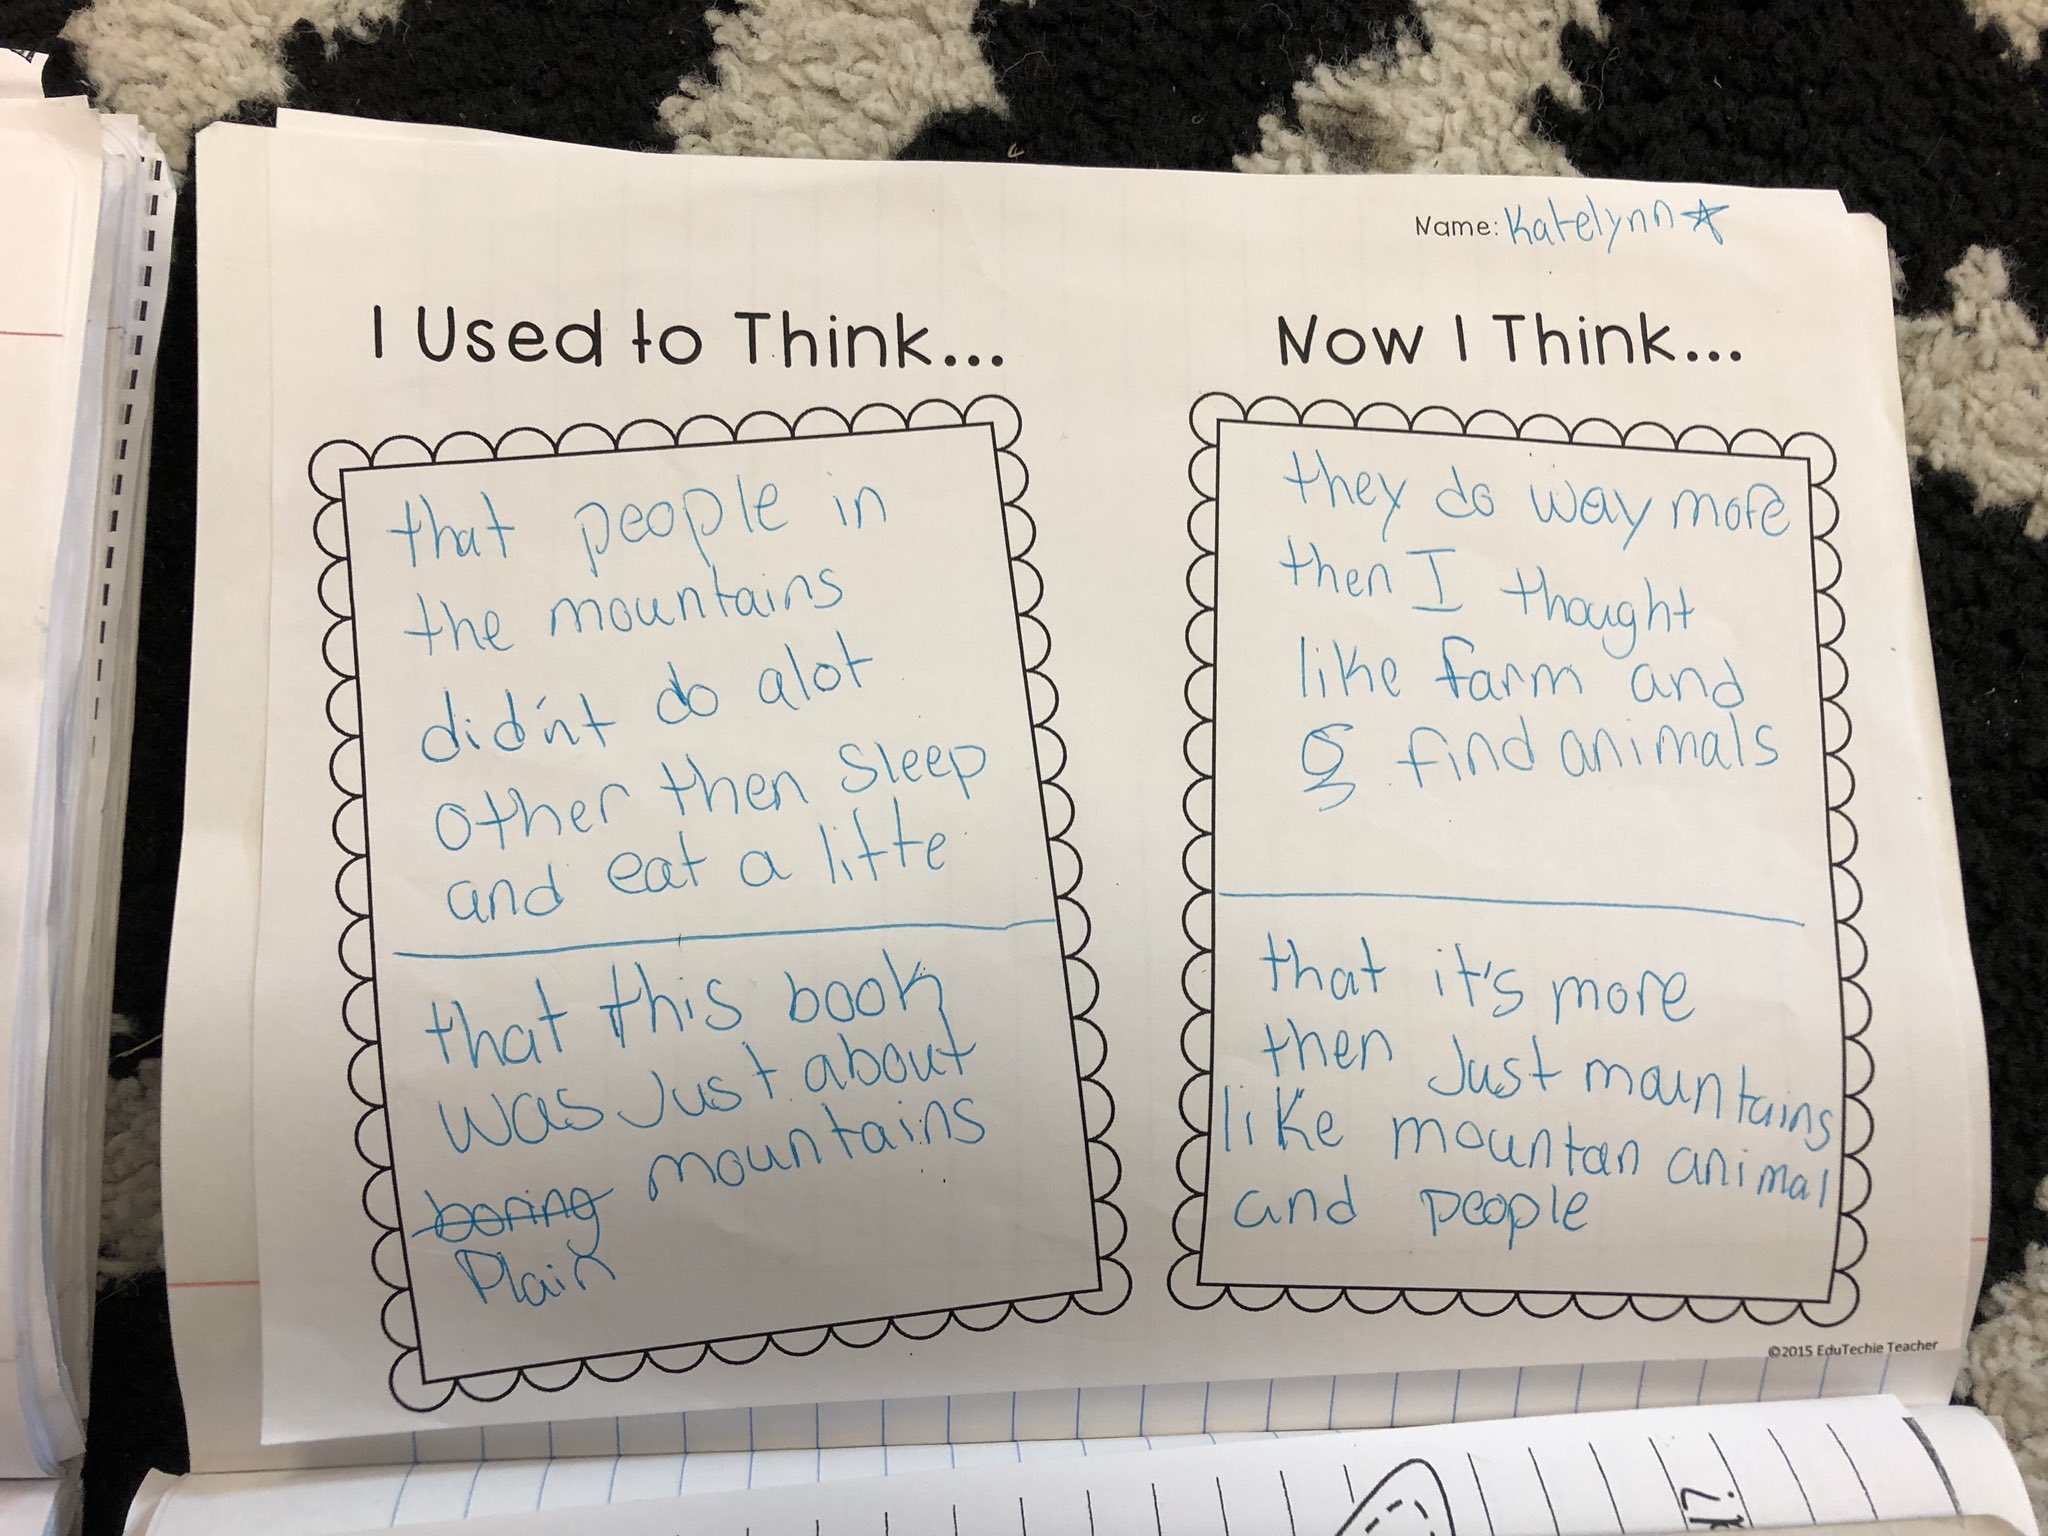 Name: Katelynn
I Used to Think...
that people in
the mountains
did'nt do alot
other then sleep
and eat a litte
that this book
was Just about
boring mountains
Plain
Now I Think...
they do way more
then I thought
like farm and
find animals
that it's more
then Just mountains
like mountan animal
and people
©2015 EduTechie Teacher